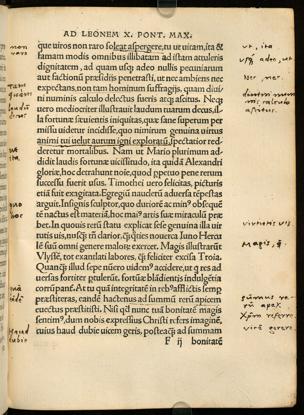 AD LEONEM X. PONT. MAX.
que uiros non raro soleat aspergere, tu ut uitam, ita &
famam modis omnibus illibatam ad istam attuleris
dignitatem, ad quam usq; adeo nullis pecuniarum
aut factionū præsidijs penetrasti, ut nec ambiens nec
expectans, non tam hominum suffragijs, quam diui/
ni numinis calculo delectus fueris atq; ascitus. Neq;
uero mediocriter illustrauit laudum tuarum decus, il/
la fortunæ sæuientis iniquitas, quæ sane superum per
missu uidetur incidisse, quo nimirum genuina uirtus
animi tui uelut aurum igni exploratū, spectatior red-
deretur mortalibus. Nam ut Mario plurimum ad-
didit laudis fortunæ uicissitudo, ita quiddā Alexandri
gloriæ, hoc detrahunt
successu fuerit usus. Timothei uero felicitas, picturis
etiā fuit exagitata. Egregiū naucleru̅ aduersa tēpestas
arguit. Insignis sculptor, quo duriore ac min⁹ obsequē
te nactus est materiā, hoc mai⁹ artis suæ miraculū præ
bet. In quouis rerū statu explicat sese genuina illa uir
rutis uis, nusq̄; nō clarior,
le suū omni genere maloꝝ exercet. Magis illustrarūt
Vlyssē, tot exantlati labores, q̄; feliciter excisa Troia.
Quanq̄; illud sepe nūero uidem⁹ accidere, ut q̄ res ad
uersas fortiter ptulerūt, fortunæ blādientis indulgētia
corrūpant. At tu quā integritatē in reb⁹ afflictis semp
præstiteras, eandē hactenus ad summū rerū apicem
euectus præstitisti. Nisi qd̄ nunc tuā bonitatē magis
sentim⁹, dum nobis expressius Christi refers imaginē,
cuius haud dubie uicem geris, posteaq̄; ad summam
F ij bonitatē
ut, ita
nec, nec.
virtutis vis
Magis, q̄.
haud
dubio